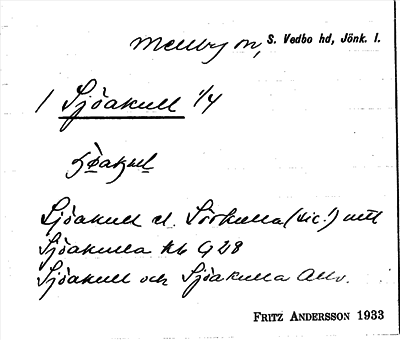 Mellby sn, S. Vedbo hd, Jönk. l.
1 Sjöakull 1/4
Sjöakull el. Sörkulla (sic!) mtl
Sjöakulla kb G 28
Sjöakull och Sjöakulla Allv.
FRITZ ANDERSSON 1933